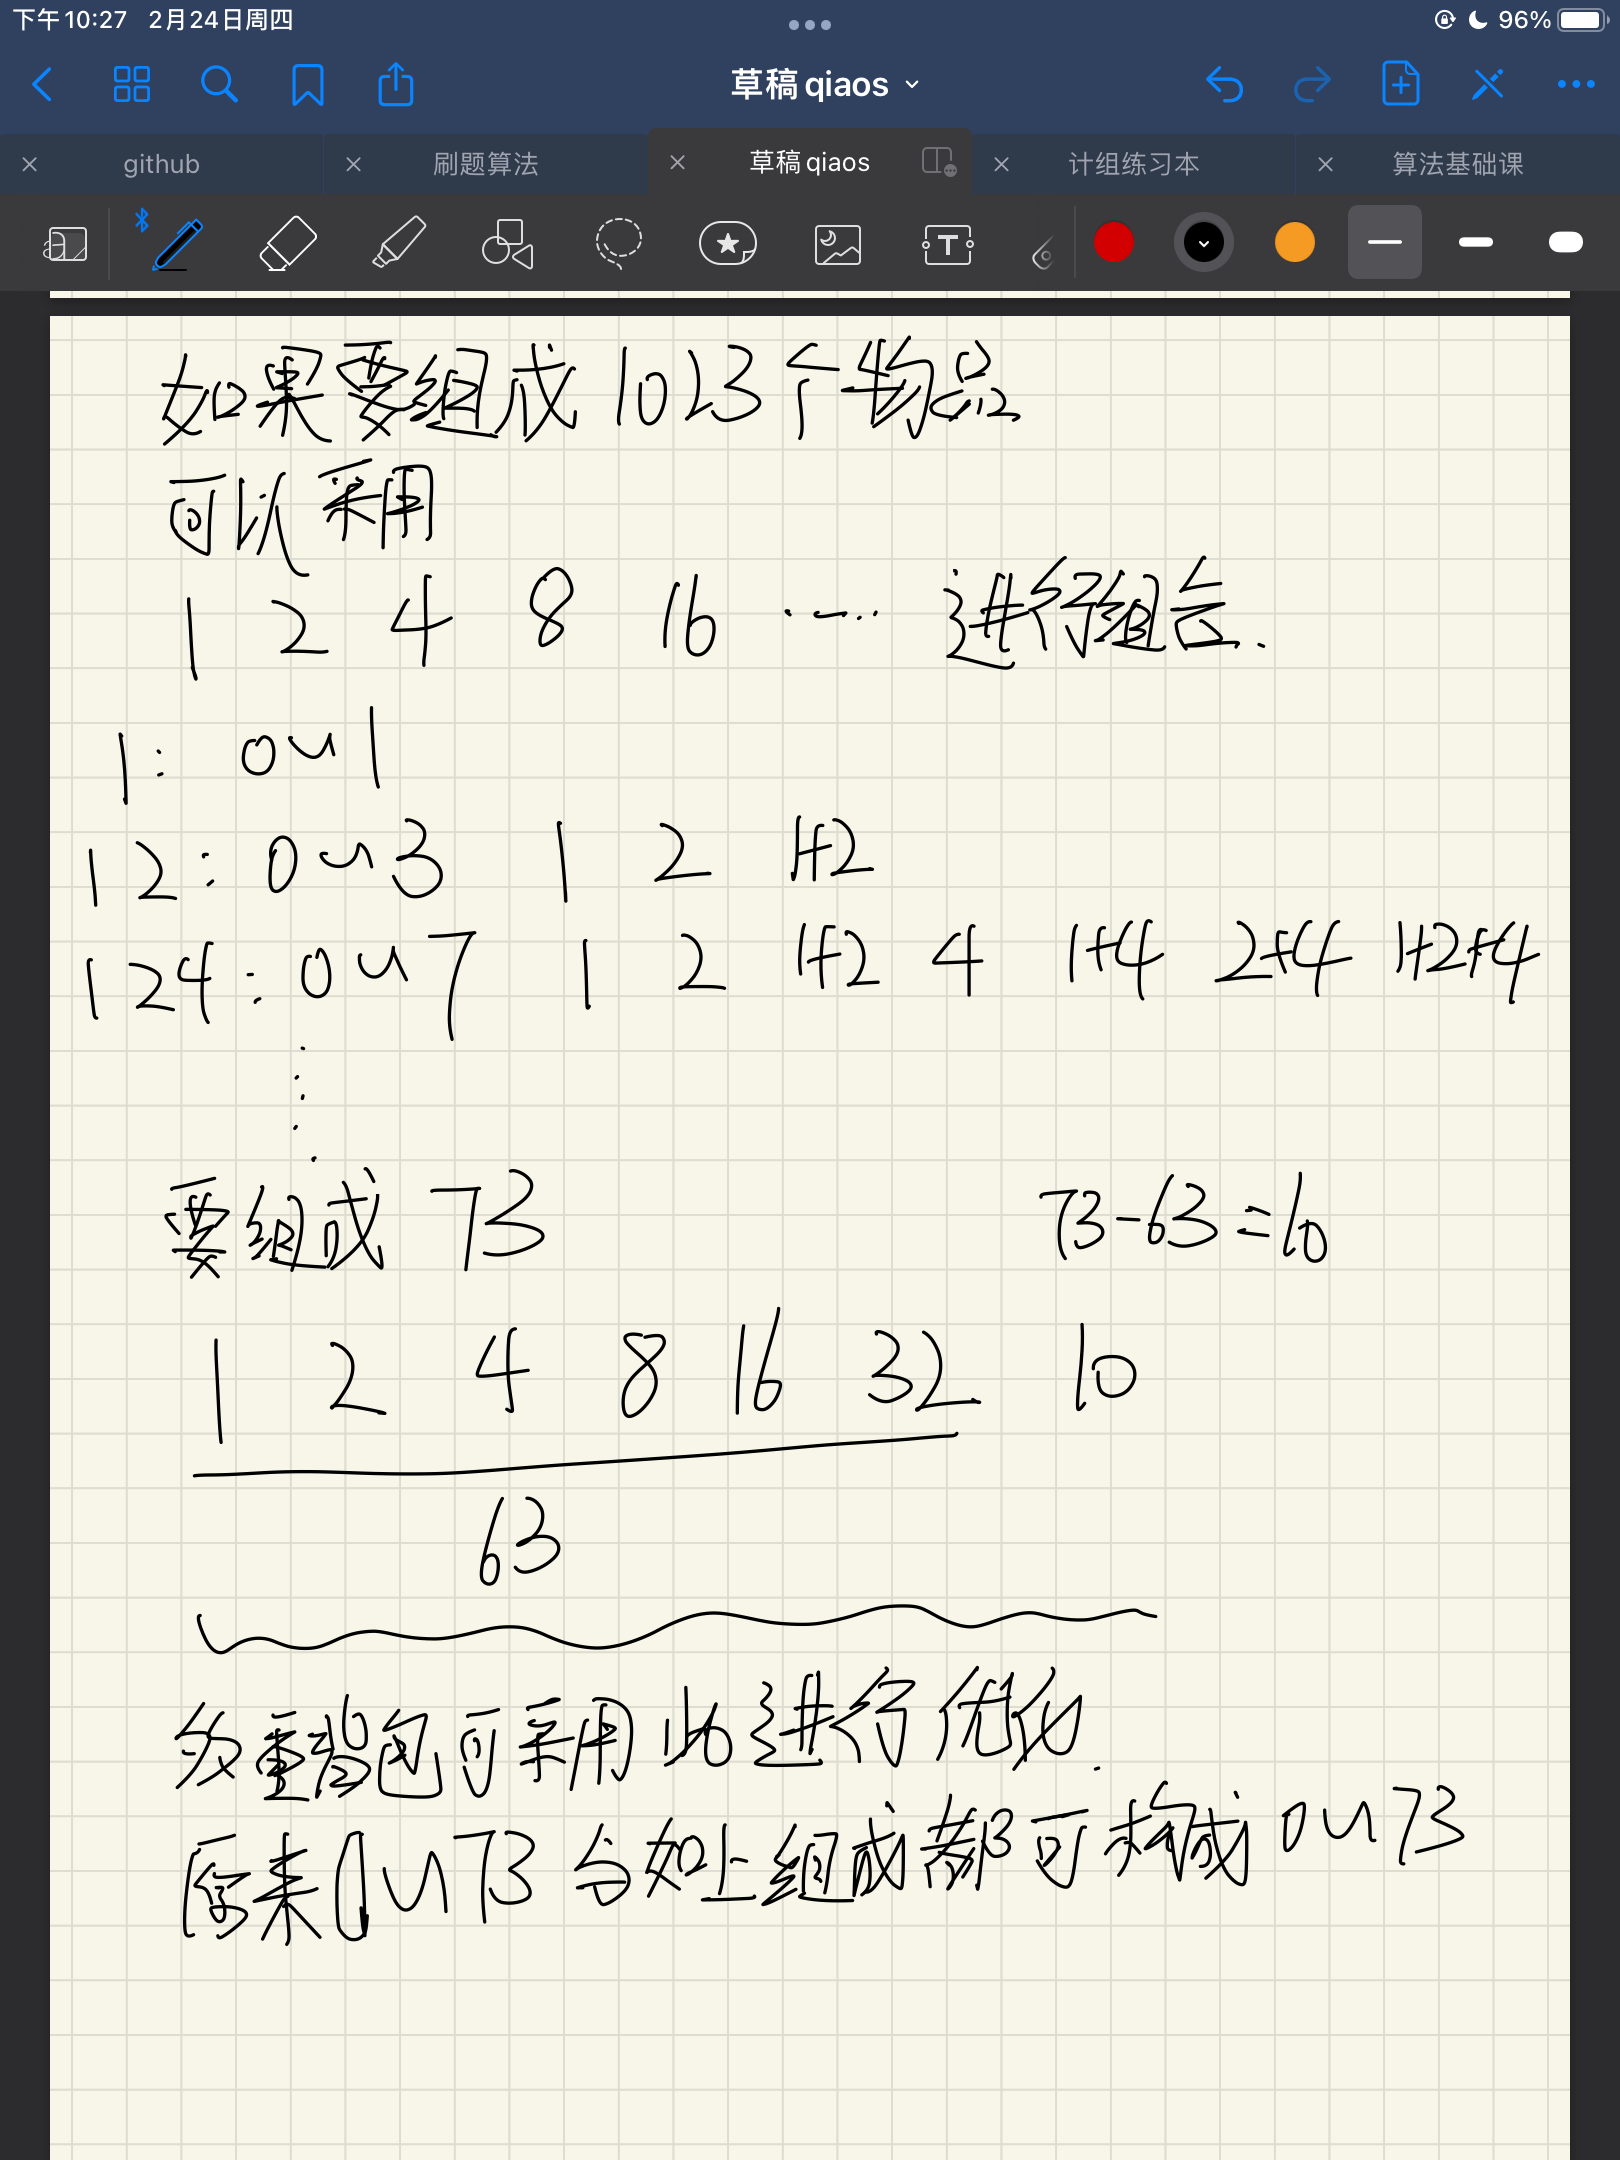 下午10:27 2月24日周四 96%
草稿qiaos
github 刷题算法 草稿qiaos 计组练习本 算法基础课
如果要组成1023个物品
可以采用
1 2 4 8 16 …… 进行组合.
1: 0~1
1 2: 0~3 1 2 1+2
1 2 4: 0~7 1 2 1+2 4 1+4 2+4 1+2+4
要组成 73 73-63=10
1 2 4 8 16 32 10
63
多重背包可采用此进行优化.
原来0~73 如上组成都可构成0~73